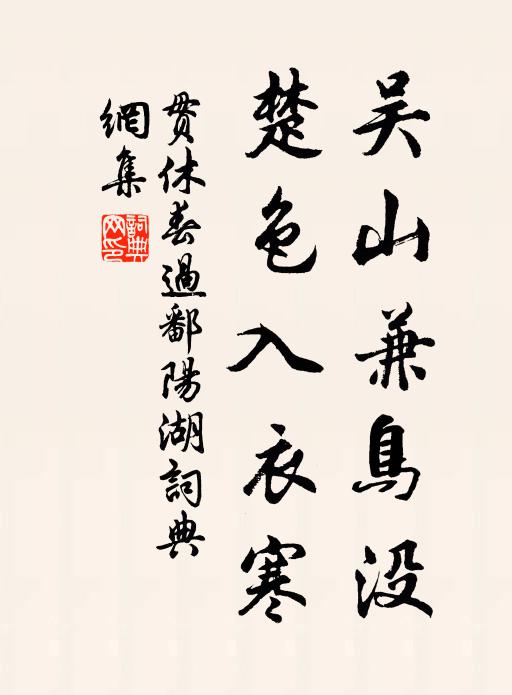 吴山兼鳥没
楚色入衣寒
贯休春過鄱陽湖詞典
網集
詞典
网印